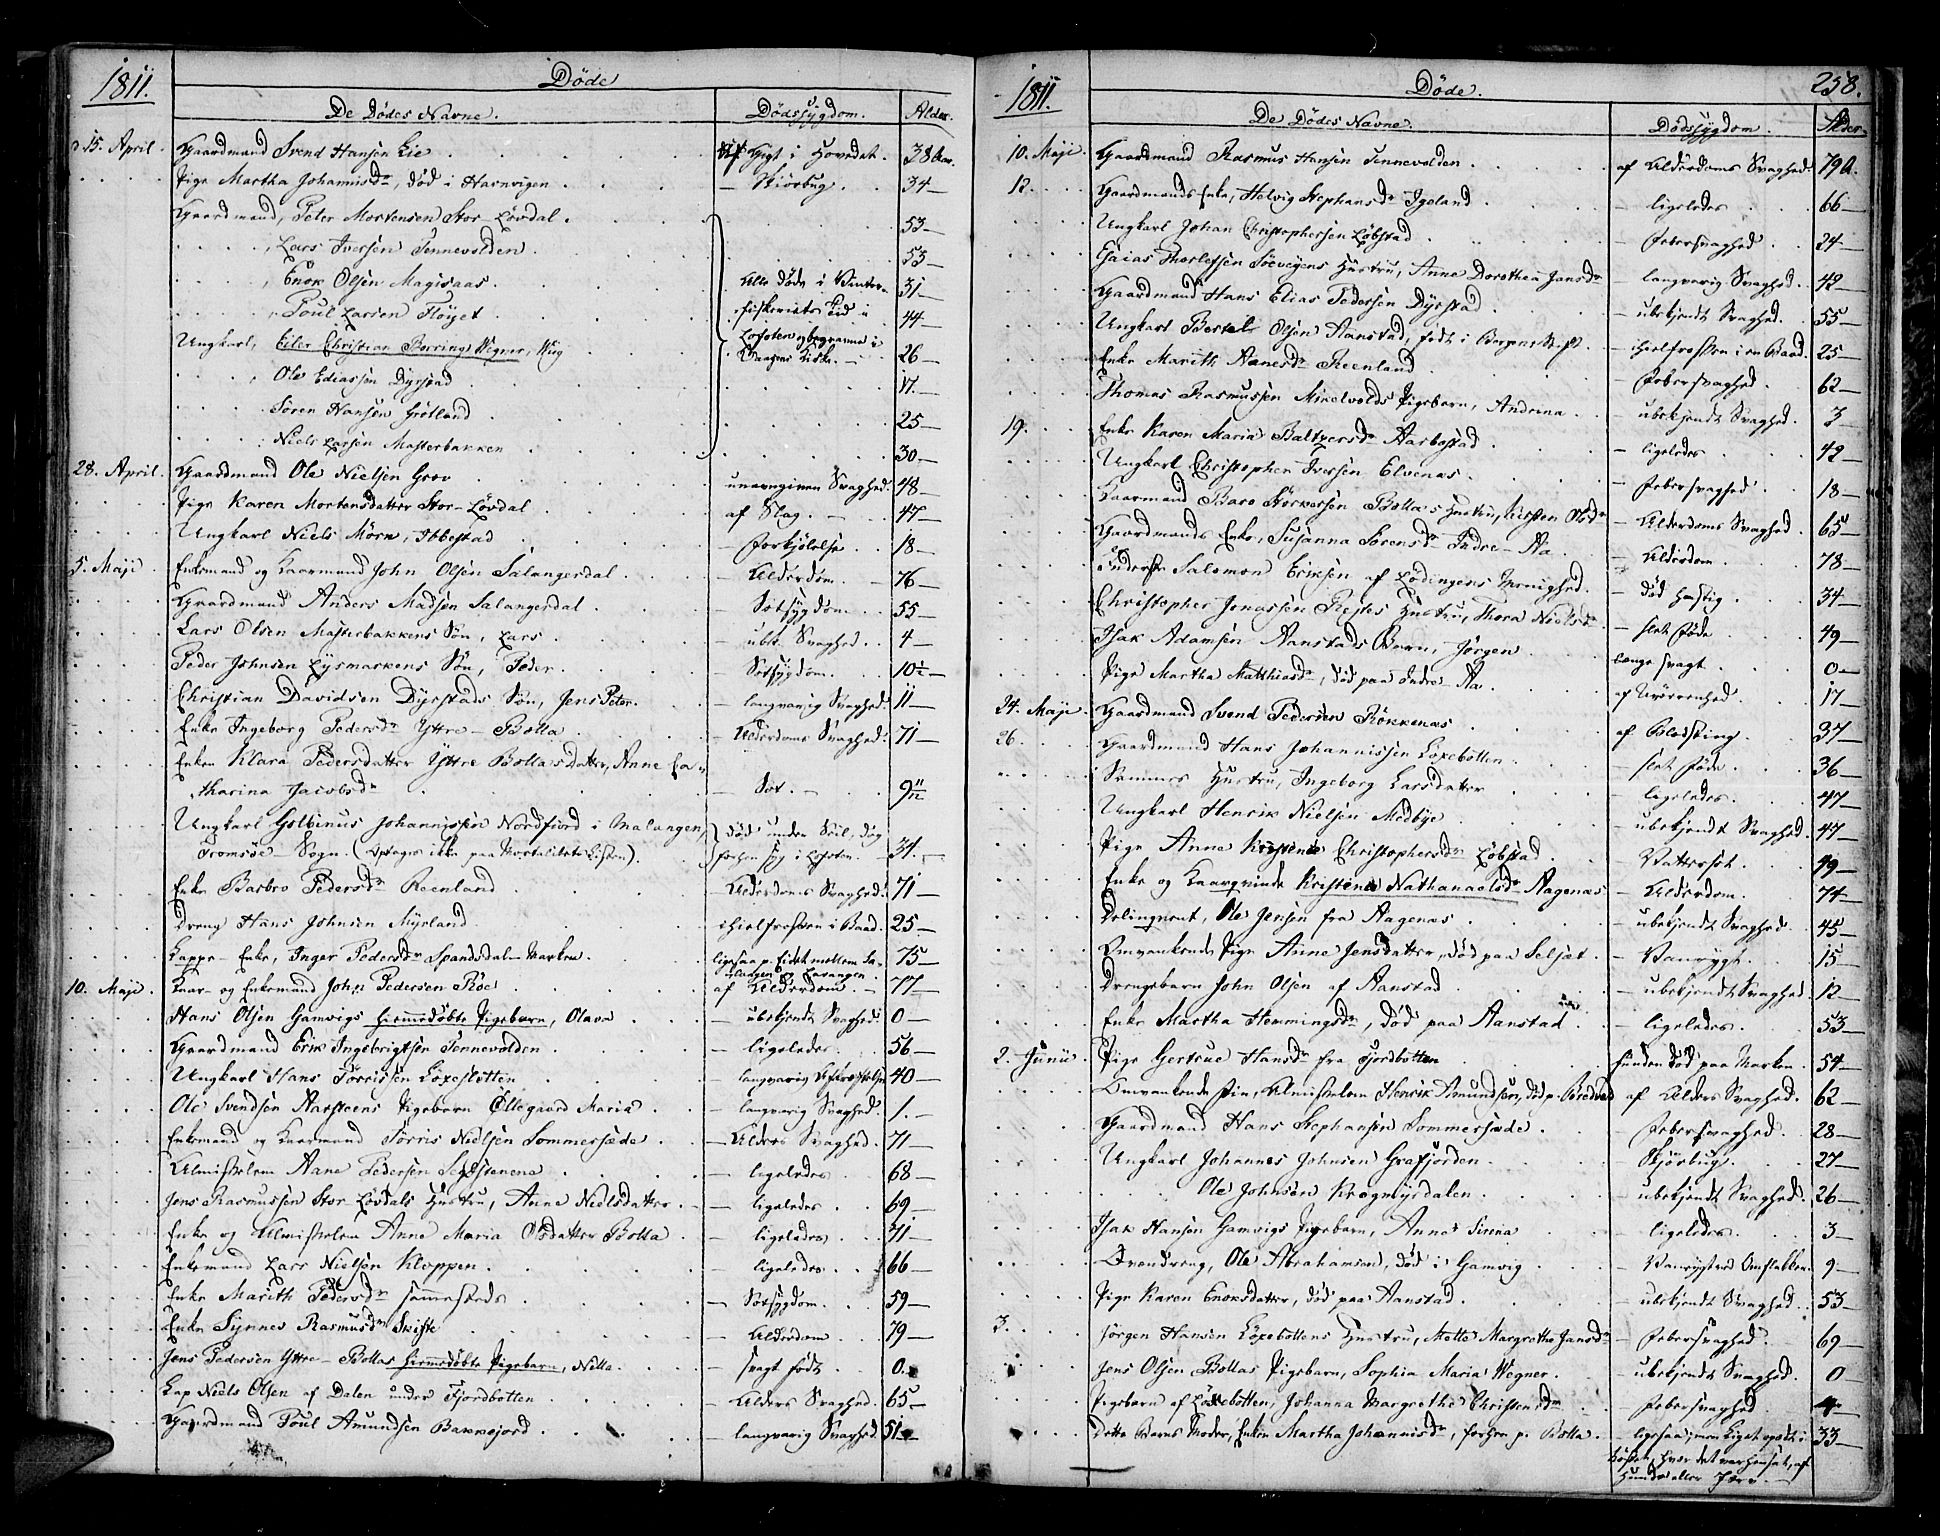 1811.
Døde
De Dødes Navne.
Dødssygdom.
Alder.
15. April. Gaardmand Svend Hansen Lie . . . af Gigt i Hovedet. 38 Aar.
Pige Martha Johannisdr, død i Havnvigen . . . — Skiörbug . . 34 —
Gaardmand, Peter Mortensen Stor-Lövdal . . . 53 —
, Lars Iversen Tennevolden . . . 53 —
, Enok Olsen Magisaas . . . Alle døde i Vinter- 31 —
, Poul Larsen Flöyet . . . fiskeriets Tid i 44 —
Ungkarl, Eiler Christian Borring Wegner, . . . Lofoten og begravne i Vaagens Kirke. — 26 —
, Ole Ediassen Dyrstad . . . 17. —
Sören Hansen Grötland . . . 25 —
Niels Larsen Masterbakken . . . 30 —
28. April. Gaardmand Ole Nielsen Grov . . . unavngiven Svaghed. 48 —
Pige Karen Mortensdatter Stor-Lövdal . . . af Slag. — 47 —
Ungkarl Niels Mörk, Ibbestad . . . — Forkjölelse . . 18 —
5. Maji. Enkemand og Kaarmand John Olsen Salangerdal . . . — Alderdom. — 76 —
Gaardmand Anders Madsen Salangerdal . . . — Sotsygdom . . 55 —
Lars Olsen Masterbakkens Sön, Lars . . . — ubk. Svaghed . . 4 —
Peder Johnsen Lysmarkens Sön, Peder . . . — Sotsygdom . . 10½ —
Christian Davidsen Dyrstads Sön, Jens Peter. . . — langvarig Svaghed 11 —
Enke Ingeborg Pedersdr Yttre-Bolla . . . — Alderdoms Svaghed. 71 —
Enken Klara Pedersdatter Yttre Bollas Datter, Anne Ca-
tharina Jacobsdr . . . — Sot. — . 9 11/12
Ungkarl Golbinus Johannissen Nordfiord i Malangen, død under Seil, dog
Tromsöe-Sogn. (Optages ikke paa Mortalitets Listen). forhen syg i Lofoten. — 34. —
Enke Barbro Pedersdr Reenland . . . — Alderdoms Svaghed. 71 —
Dreng Hans Johnsen Myrland . . . ihielfrossen i Baad. 25 —
Lappe-Enke, Inger Pedersdr Spandsdal-Marken . . ligesaa p. Eidet mellem Sa-langen og Lavangen. 75 —
10. Maji. Kaar- og Enkemand John Pedersen Röe . . . af Alderdom. — 77 —
Hans Olsen Gamvigs hjemmedøbte Pigebarn, Olava . . — ubekjendt Svaghed. 0 —
Gaardmand Erik Ingebrigtsen Tennevolden . . . — ligeledes . . 56 —
Ungkarl Hans Törrissen Löxebotten . . . — langvarig Afkræftelse 40 —
Ole Svendsen Aarsteens Pigebarn Ollegaard Maria . . — langvarig Svaghed. 1. —
Enkemand og Kaarmand Törris Nielsen Sommersæde . . — Alders Svaghed. 71 —
Almisselem Aane Pedersen . . . — ligeledes . . 68 —
Jens Rasmussen Stor Lövdals Hustru, Anne Nielsdatter . . — ligeledes . . 69 —
Enke og Almisselem Anne Maria Olsdatter Bolla . . — ligeledes . . 71 —
Enkemand Lars Nielsen Kloppen . . . — ligeledes . . 66 —
Enke Marith Pedersdr sammesteds . . . — Sotsygdom . . 59 —
Enke Synnev Rasmusdr . . . — Alderdom . . 79 —
Jens Pedersen Yttre-Bollas hjemmedøbte Pigebarn, Nilla . . — svagt født . 0.
Lap Niels Olsen af Dalen under Fjordbotten . . . — Alders Svaghed. 65 —
Gaardmand Poul Amundsen Bakkejord . . . — langvarig Svaghed 51 —
1811.
Døde.
258.
De Dødes Navne.
Dødssygdom.
Alder.
10. Maji. Gaardmand Rasmus Hansen Tennevolden . . . af Alderdoms Svaghed. 79 A.
12. . . Gaardmands Enke, Helvig Stephansdr Igeland . . . — ligeledes . . 66 —
Ungkarl Johan Christophersen Löbstad . . . — Febersvaghed . . 24 —
Esaias Thorlefsen Söevejens Hustru, Anne Dorothea Jansdr — langvarig Svaghed . . 42 —
Gaardmand Hans Elias Pedersen Dyrstad . . . — ubekjendt Svaghed. 55 —
Ungkarl Bertel Olsen Aanstad, født i Bergens Stift . . — ihielfrossen i en Baad. 25 —
Enke Marith Aanesdr Reenland . . . — Febersvaghed . . 62 —
Thomas Rasmussen Mikelvolds Pigebarn, Andrina . . — ubekjendt Svaghed. 3
19. . . Enke Karen Maria Baltzersdr Aarbostad . . . — ligeledes . . 42 —
Ungkarl Christopher Iversen Elvenæs . . . — Febersvaghed . . 18 —
Kaarmand Baro Störkersen Bollas Hustru, Kirsten Olsdr — Alderdoms Svaghed. 65 —
Gaardmands Enke, Susanna Sörensdr Indre-Aa . . — Alderdom . . 78 —
Salomon Eriksen af Lödingens Menighed. — død hastig . . 34 —
Christopher Jonassen Hustru, Thora Nielsdr — slet Føde . . 49 —
Isak Adamsen Aanstads Barn, Jörgen . . . længe svagt . . 0 —
Pige Martha Matthiasdr, død paa Indre-Aa . . . af Vrövenhed . . 17 —
24. Maji. Gaardmand Svend Pedersen Rökkenæs . . . af Blodsting. 37 —
26. . . Gaardmand Hans Johannissen Löxebotten . . . — slet Føde . . 36 —
Sammes Hustru, Ingeborg Larsdatter . . . — ligeledes . . 47 —
Ungkarl Henrik Nielsen Medbye . . . — ubekjendt Svaghed. 47 —
Pige Anne Kirstine Christophersdr Löbstad . . . — Vattersot. . 49 —
Enke og Kaarqvinde Kristine Nathanaelsdr Aagenæs — Alderdom . . 74 —
Delinqvent, Ole Jensen fra Aagenæs . . . — ubekjendt Svaghed 45 —
Omvankende Pige Anne Jensdatter, død paa Seljset . . — Vanrygt . . 15 —
Drengebarn John Olsen af Aanstad . . . — ubekjendt Svaghed. 12 —
Enke Martha Hemmingsdr, død paa Aanstad . . — ligeledes . . 53 —
2. Junii. Pige Gertrue Hansdr fra Fjordbotten . . . funden død paa Marken. 54 —
Omvankende Almisselem Henrik Amundsen, død p. Bredvad af Alders Svaghed. 62 —
Gaardmand Hans Stephansen Sommersæde . . . — Febersvaghed . . 28 —
Ungkarl Johannes Johnsen Grafjorden . . . — Skjörbug . . 27 —
Ole Johnsen Krogmyrdalen . . . — ubekjendt Svaghed. 26 —
Isak Hansen Gamvigs Pigebarn, Anne Sirena . . . — ligeledes . . 3 —
Qvændreng, Ole Abrahamsen, død i Gamvig . . . — Vanrygt ved Omflakken. 9 —
Pige Karen Enoksdatter, død paa Aanstad . . . — ubekjendt Svaghed. 53 —
3. . . Jörgen Hansen Löxebottens Hustru, Mette Margrethe Jansdr — Febersvaghed . . 69 —
Jens Olsen Bollas Pigebarn, Sophia Maria Wegner . . — ubekjendt Svaghed. 0 —
Pigebarn af Löxebotten, Johanna Margrethe Christensdr . . — Febersvaghed . 4 —
Dette Barns Moder, Enken Martha Johannisdr, forhen p. Bolla . . — ligesaa; men Liget opædt i 33 —
hvor det var hensat, af
Hunde eller Jerv. —